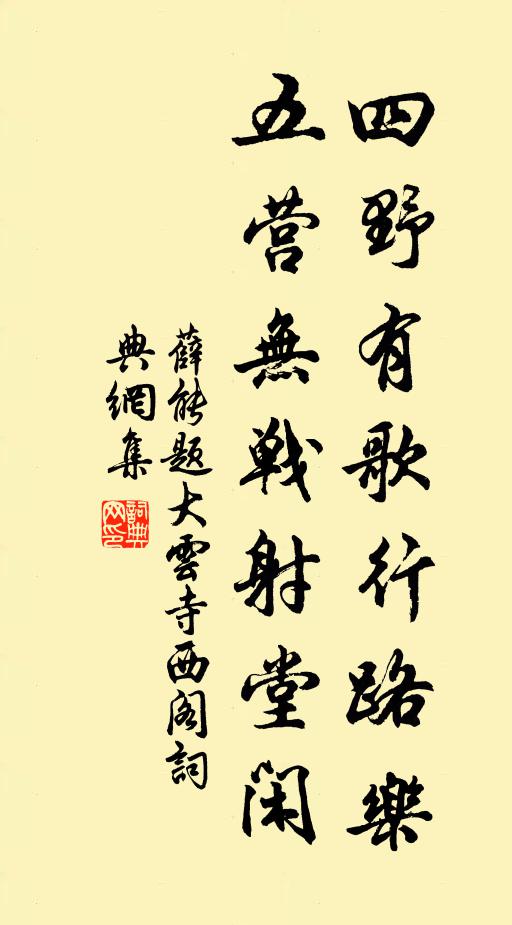 四野有歌行路樂
五营無戰射堂閑
薛能题大雲寺西阁詞
典網集
詞典网印